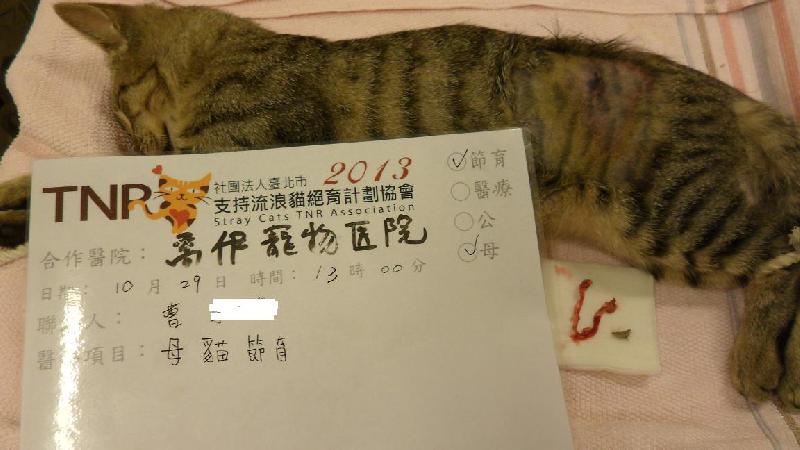 TNR
社團法人臺北市
2013
支持流浪貓絕育計劃協會
Stray Cats TNR Association
節育
醫療
公
母
合作醫院：萬伊寵物医院
日期：10月29日 時間：13時00分
聯 人：曹
醫 項目：母貓節育